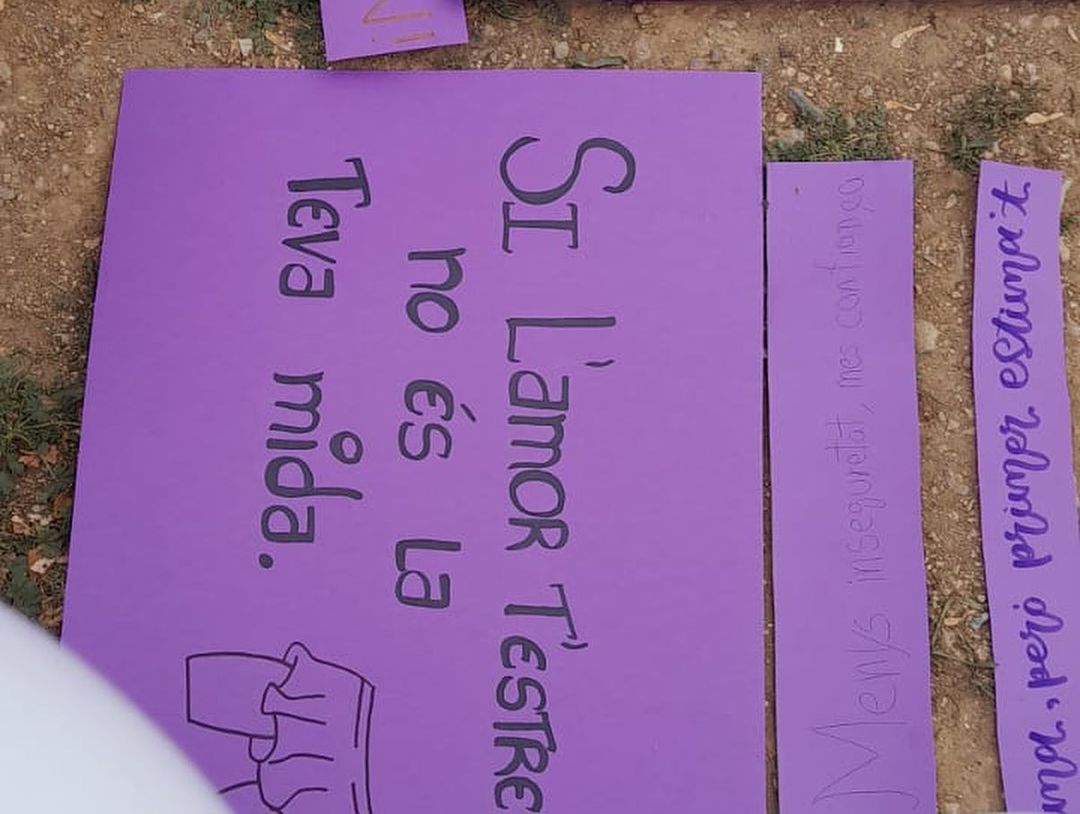 SI L'amor T'estre
no és la
Teva mida.
Menys inseguretat, mes confiança
ma, però primer estima't